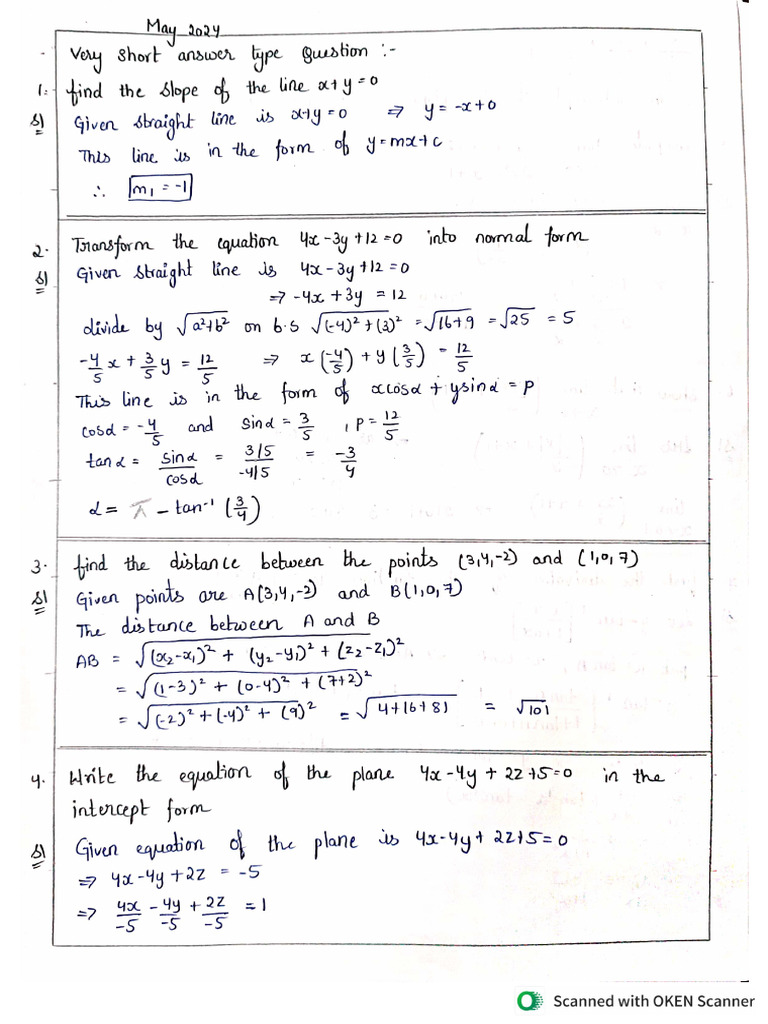 May 2024
Very short answer type Question :-
1. find the slope of the line x+y=0
s) Given straight line is x+y=0 ⇒ y = -x+0
This line is in the form of y=mx+c
∴ m₁ = -1
2. Transform the equation 4x-3y+12=0 into normal form
s) Given straight line is 4x-3y+12=0
⇒ -4x+3y = 12
divide by √(a²+b²) on b.s √((-4)²+(3)²) = √(16+9) = √25 = 5
-4/5 x + 3/5 y = 12/5 ⇒ x(-4/5) + y(3/5) = 12/5
This line is in the form of xcosα + ysinα = P
cosα = -4/5 and sinα = 3/5 , P = 12/5
tanα = sinα/cosα = 3/5/-4/5 = -3/4
α = π - tan⁻¹(3/4)
3. find the distance between the points (3,4,-2) and (1,0,7)
s) Given points are A(3,4,-2) and B(1,0,7)
The distance between A and B
AB = √((x₂-x₁)² + (y₂-y₁)² + (z₂-z₁)²)
= √((1-3)² + (0-4)² + (7+2)²)
= √((-2)² + (-4)² + (9)²) = √(4+16+81) = √101
4. Write the equation of the plane 4x-4y+2z+5=0 in the
intercept form
s) Given equation of the plane is 4x-4y+2z+5=0
⇒ 4x-4y+2z = -5
⇒ 4x/-5 - 4y/-5 + 2z/-5 = 1
Scanned with OKEN Scanner